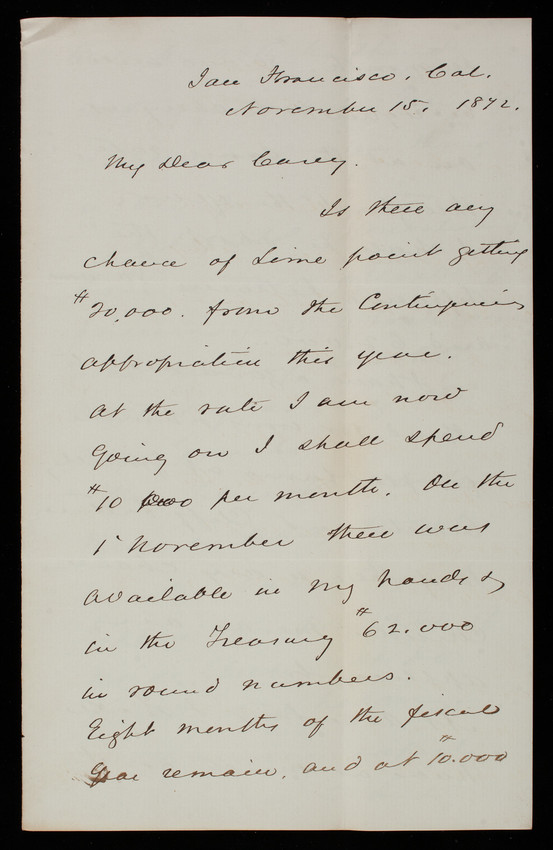 San Francisco. Cal.
November 15. 1872.
My Dear Casey.
Is there any
chance of Lime point getting
$20,000. from the Contingencies
appropriation this year.
At the rate I am now
going on I shall spend
$10 000 per month. On the
1st November there was
available in my hands &
in the Treasury $62.000
in round numbers.
Eight months of the fiscal
year remain, and at $10.000